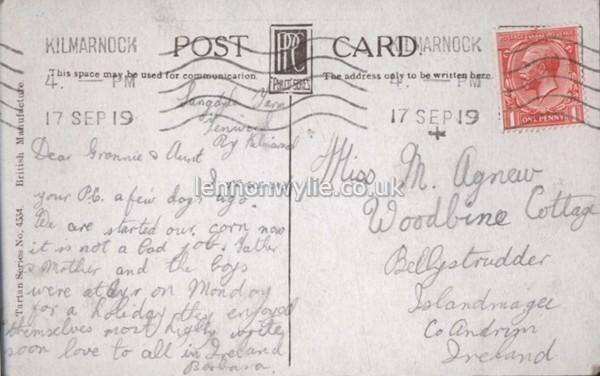 KILMARNOCK
4. — PM
17 SEP 19
POST CARD.
This space may be used for communication.
The address only to be written here.
KILMARNOCK
4. — PM
17 SEP 19
POSTAGE REVENUE
1 ONE PENNY 1
Tartan Series No. 4554 British Manufacture
Fenwick
By Kilmarnd
Dear Grannie & Aunt
I
your P.C. a few days ago.
We are started our corn now
it is not a bad job. Father
& Mother and the boys
were at Ayr on Monday
for a holiday they enjoyed
themselves most highly write
soon love to all in Ireland
Barbara.
Miss M. Agnew
Woodbine Cottage
Bellystrudder
Islandmagee
Co Andrim
Ireland
lennonwylie.co.uk